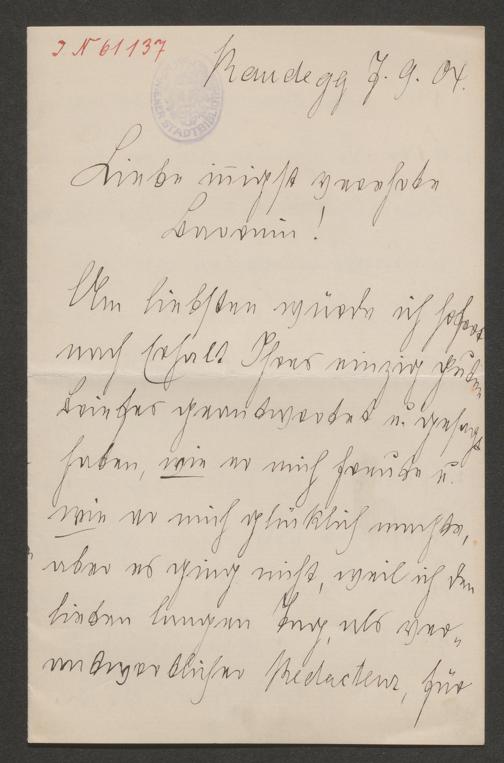 I N 61137
WIENER STADTBIBLIOTHEK
Randegg 7. 9. 04.
Liebe innigst verehrte
Baronin!
Am liebsten würde ich sofort
nach Erhalt Ihres einzig guten
Briefes geantwortet u. gesagt
haben, wie er mich freute u.
wie er mich glücklich machte,
aber es ging nicht, weil ich den
lieben langen Tag, als ver„
antwortlicher Redacteur, für